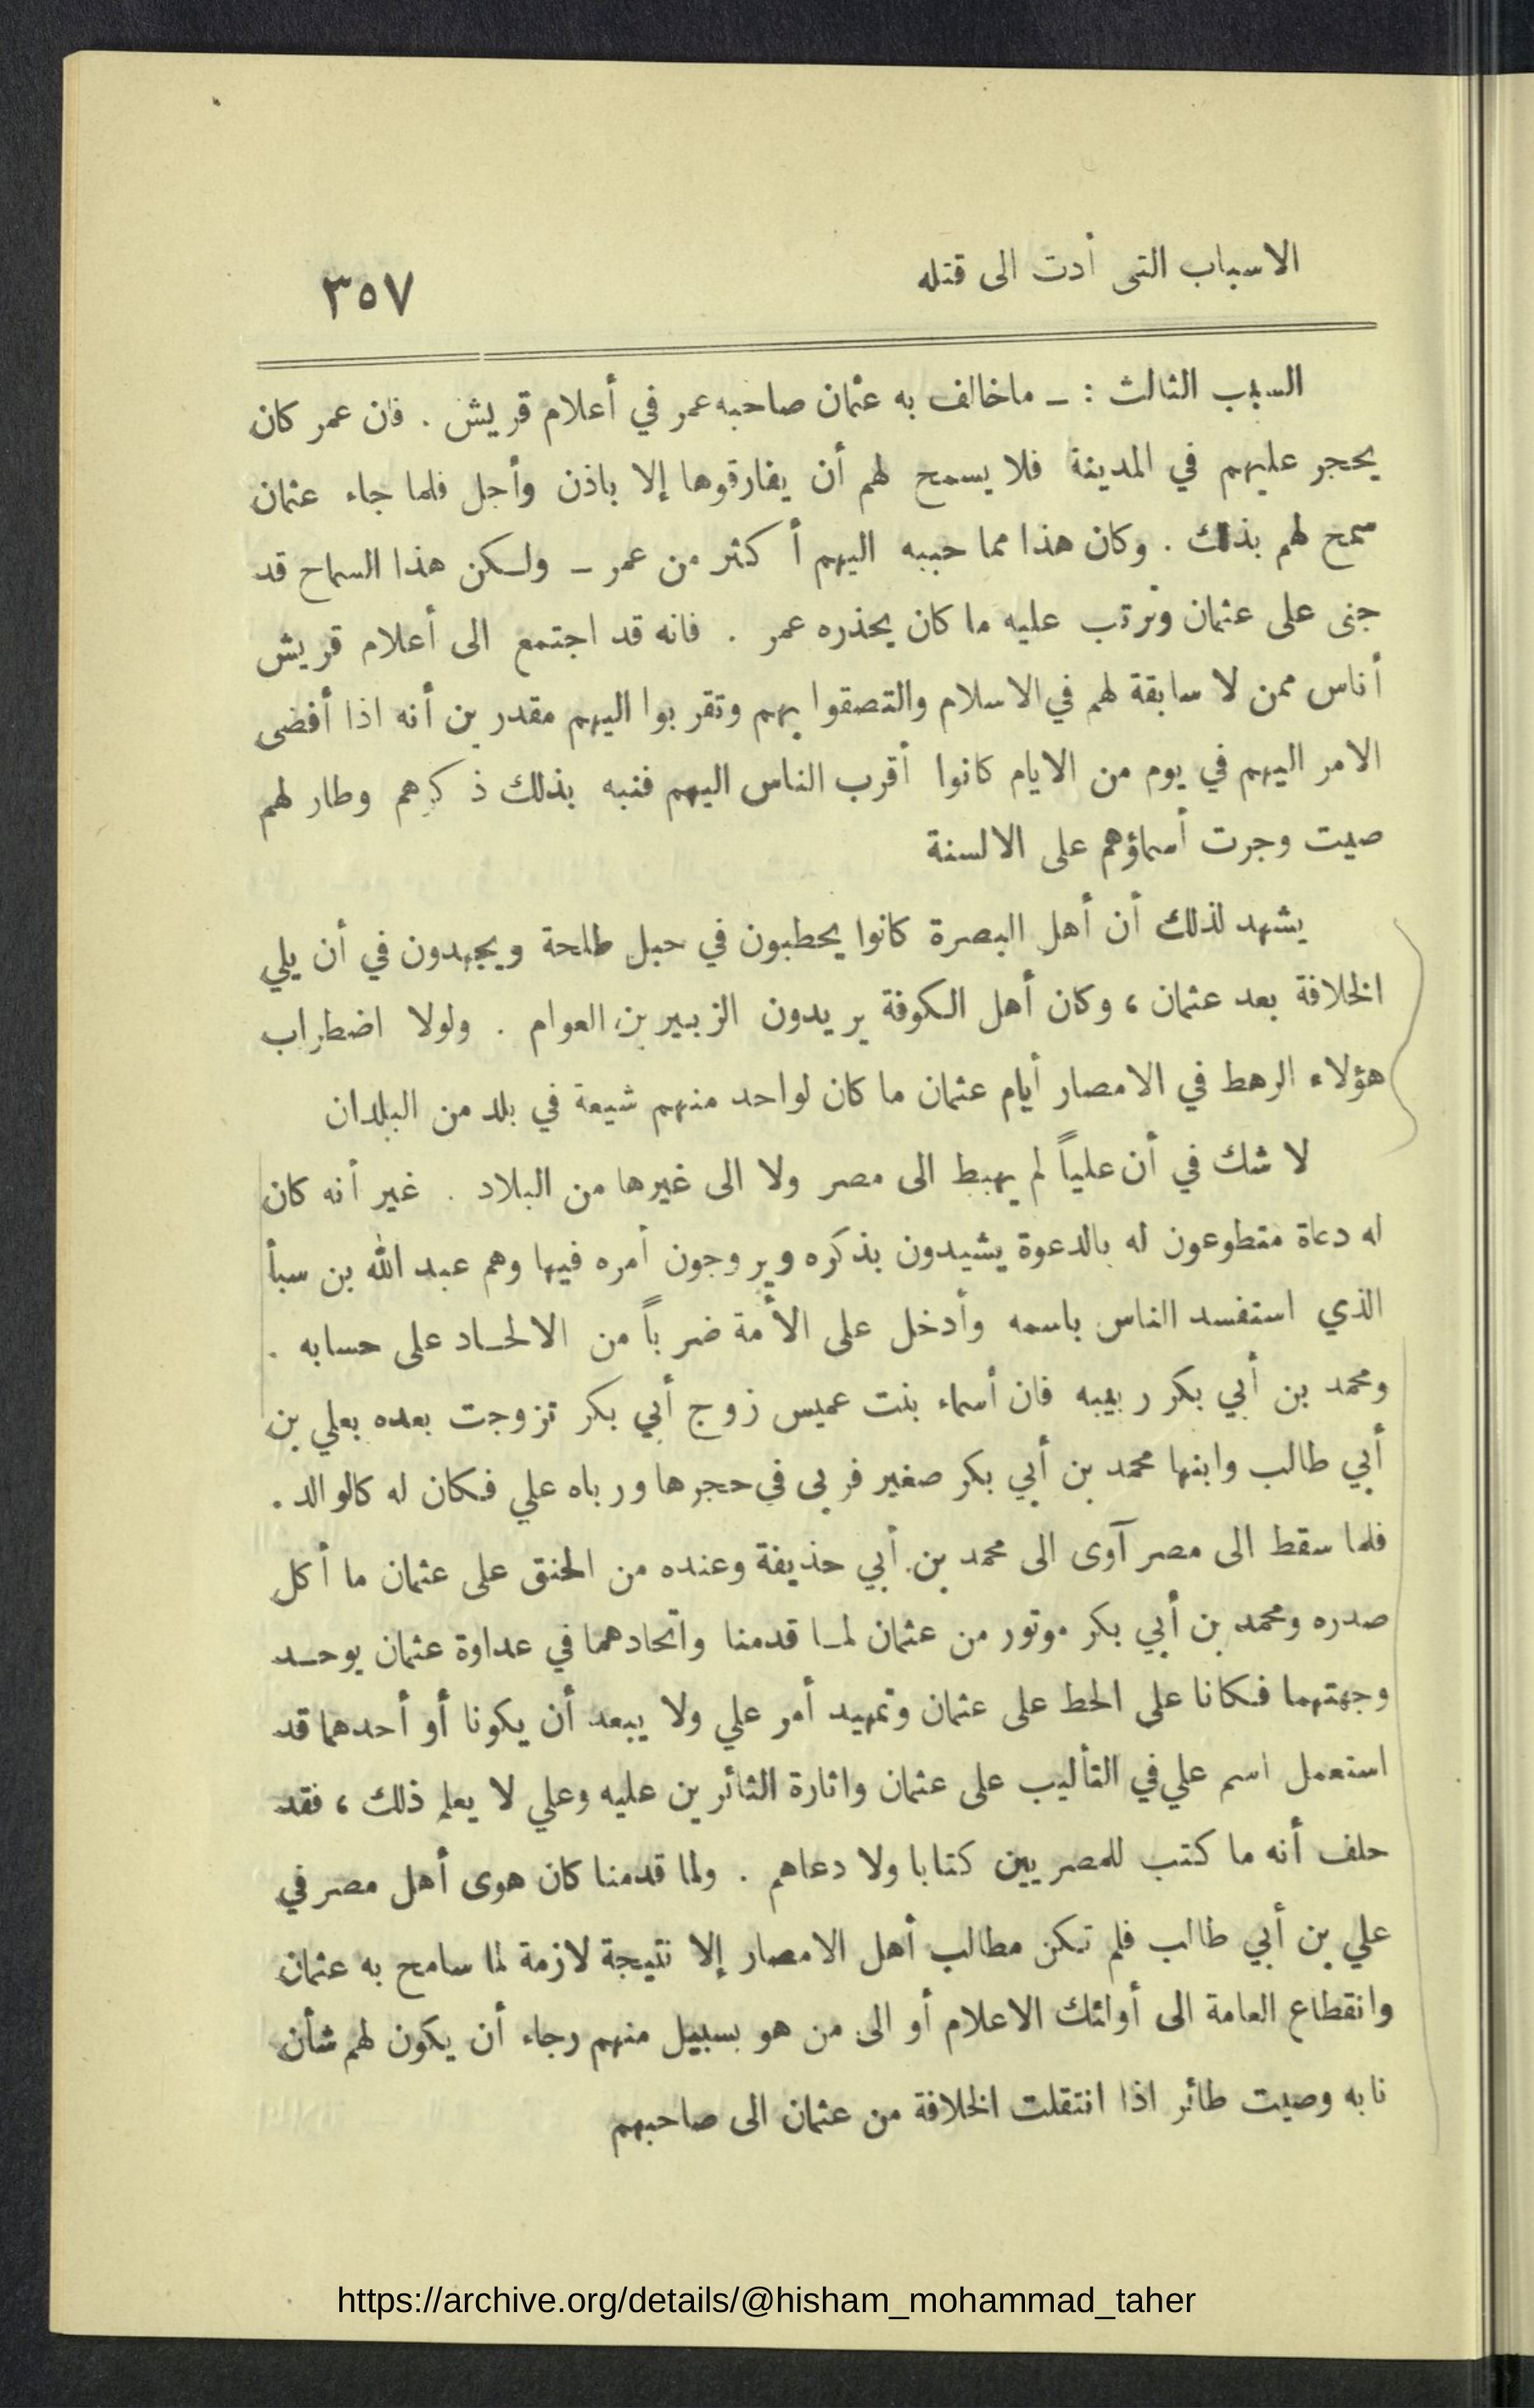 الاسباب التى أدت الى قتله
٣٥٧
السبب الثالث : ــ ماخالف به عثمان صاحبه عمر في أعلام قريش . فان عمر كان
يحجر عليهم في المدينة فلا يسمح لهم أن يفارقوها إلا باذن وأجل فلما جاء عثمان
سمح لهم بذلك . وكان هذا مما حببه اليهم أكثر من عمر ــ ولكن هذا السماح قد
جنى على عثمان وترتب عليه ما كان يحذره عمر . فانه قد اجتمع الى أعلام قريش
أناس ممن لا سابقة لهم في الاسلام والتصقوا بهم وتقربوا اليهم مقدرين أنه اذا أفضى
الامر اليهم في يوم من الايام كانوا أقرب الناس اليهم فنبه بذلك ذكرهم وطار لهم
صيت وجرت أسماؤهم على الالسنة
يشهد لذلك أن أهل البصرة كانوا يحطبون في حبل طلحة ويجهدون في أن يلي
الخلافة بعد عثمان ، وكان أهل الكوفة يريدون الزبير بن العوام . ولولا اضطراب
هؤلاء الرهط في الامصار أيام عثمان ما كان لواحد منهم شيعة في بلد من البلدان
لا شك في أن علياً لم يهبط الى مصر ولا الى غيرها من البلاد . غير أنه كان
له دعاة متطوعون له بالدعوة يشيدون بذكره ويروجون أمره فيها وهم عبد الله بن سبأ
الذي استفسد الناس باسمه وأدخل على الأمة ضرباً من الالحاد على حسابه .
ومحمد بن أبي بكر ربيبه فان أسماء بنت عميس زوج أبي بكر تزوجت بعده بعلي بن
أبي طالب وابنها محمد بن أبي بكر صغير فربى في حجرها ورباه علي فكان له كالوالد .
فلما سقط الى مصر آوى الى محمد بن أبي حذيفة وعنده من الحنق على عثمان ما أكل
صدره ومحمد بن أبي بكر موتور من عثمان لما قدمنا واتحادهما في عداوة عثمان يوحد
وجهتهما فكانا على الحط على عثمان وتمهيد أمر علي ولا يبعد أن يكونا أو أحدهما قد
استعمل اسم علي في التأليب على عثمان واثارة الثائرين عليه وعلي لا يعلم ذلك ، فقد
حلف أنه ما كتب للمصريين كتابا ولا دعاهم . ولما قدمنا كان هوى أهل مصر في
علي بن أبي طالب فلم تكن مطالب أهل الامصار إلا نتيجة لازمة لما سامح به عثمان
وانقطاع العامة الى أولئك الاعلام أو الى من هو بسبيل منهم رجاء أن يكون لهم شأن
نابه وصيت طائر اذا انتقلت الخلافة من عثمان الى صاحبهم
https://archive.org/details/@hisham_mohammad_taher